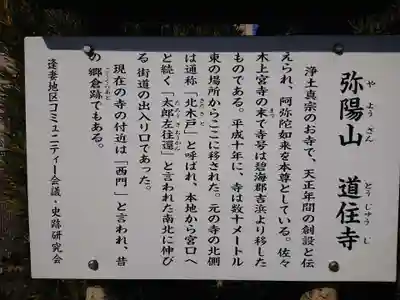 弥陽山 道住寺
や よう ざん どう じゅう じ
浄土真宗のお寺で、天正年間の創設と伝
えられ、阿弥陀如来を本尊としている。佐々
木上宮寺の末で寺号は碧海郡吉浜より移した
ものである。平成十年に、寺は数十メートル
東の場所からここに移された。元の寺の北側
は通称「北木戸」と呼ばれ、本地から宮口へ
と続く「太郎左往還」と言われた南北に伸び
る街道の出入り口であった。
現在の寺の付近は「西門」と言われ、昔
の郷倉跡でもある。
逢妻地区コミュニティー会議・史跡研究会